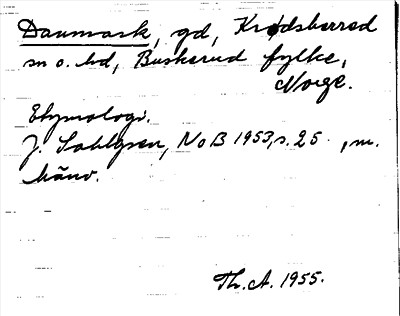 Danmark, gd, Krødsherred
sn o. hd, Buskerud fylke,
Norge.
Etymologi.
J. Sahlgren, NoB 1953, s. 25, m.
hänv.
Th. A. 1955.